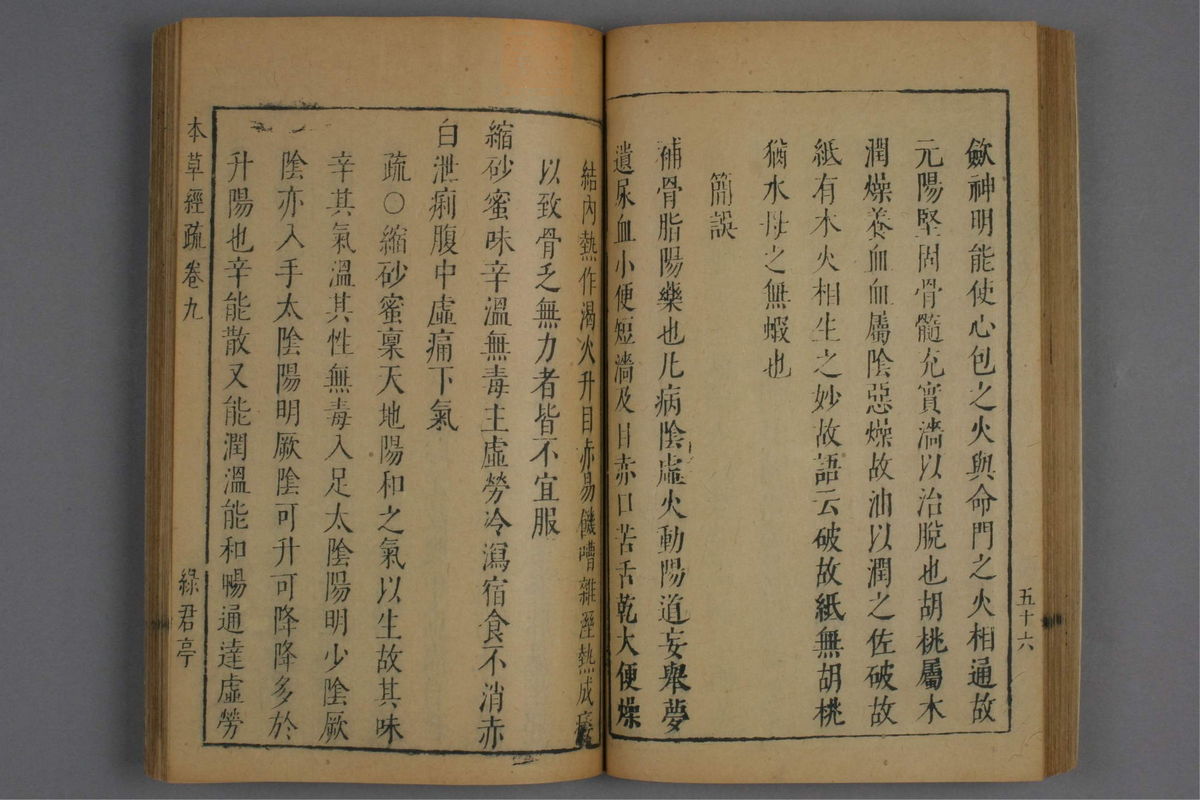 五十六
歛神明能使心包之火與命門之火相通故
元陽堅固骨髓充實濇以治脫也胡桃屬木
潤燥養血血屬陰惡燥故油以潤之佐破故
紙有木火相生之妙故語云破故紙無胡桃
猶水母之無蝦也
簡誤
補骨脂陽藥也凡病陰虛火動陽道妄舉夢
遺尿血小便短濇及目赤口苦舌乾大便燥
結內熱作渴火升目赤易饑嘈雜溼熱成痿
以致骨乏無力者皆不宜服
縮砂蜜味辛溫無毒主虛勞冷瀉宿食不消赤
白泄痢腹中虛痛下氣
疏○縮砂蜜稟天地陽和之氣以生故其味
辛其氣溫其性無毒入足太陰陽明少陰厥
陰亦入手太陰陽明厥陰可升可降降多於
升陽也辛能散又能潤溫能和暢通達虛勞
本草經疏卷九
綠君亭